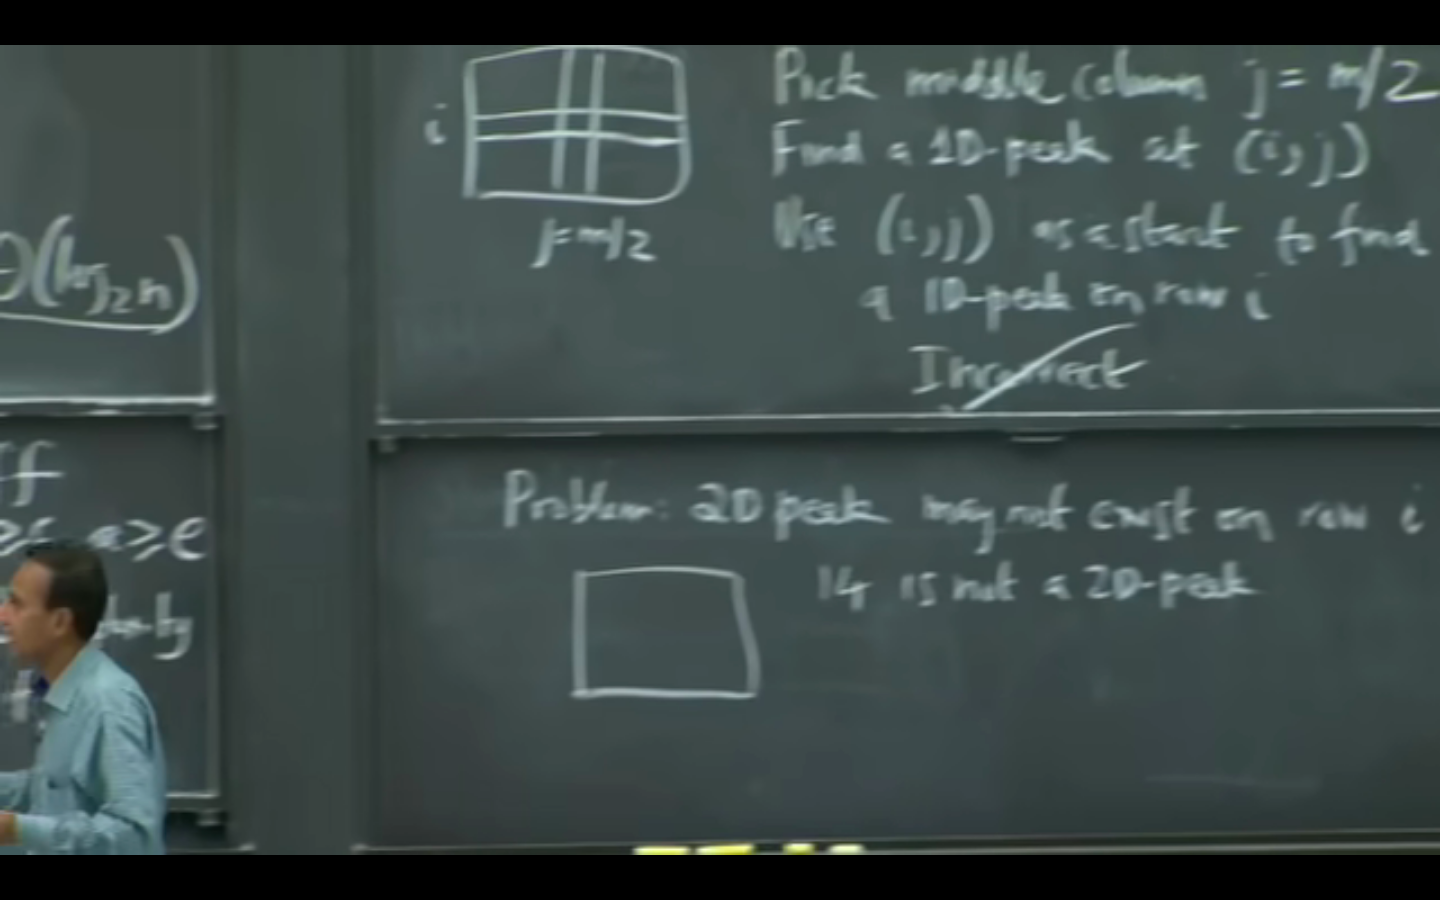 Θ(log₂n)
a≥e
i
j=m/2
Pick middle column j = m/2
Find a 1D-peak at (i,j)
Use (i,j) as a start to find
a 1D-peak on row i
Incorrect
Problem: 2D peak may not exist on row i
14 is not a 2D-peak